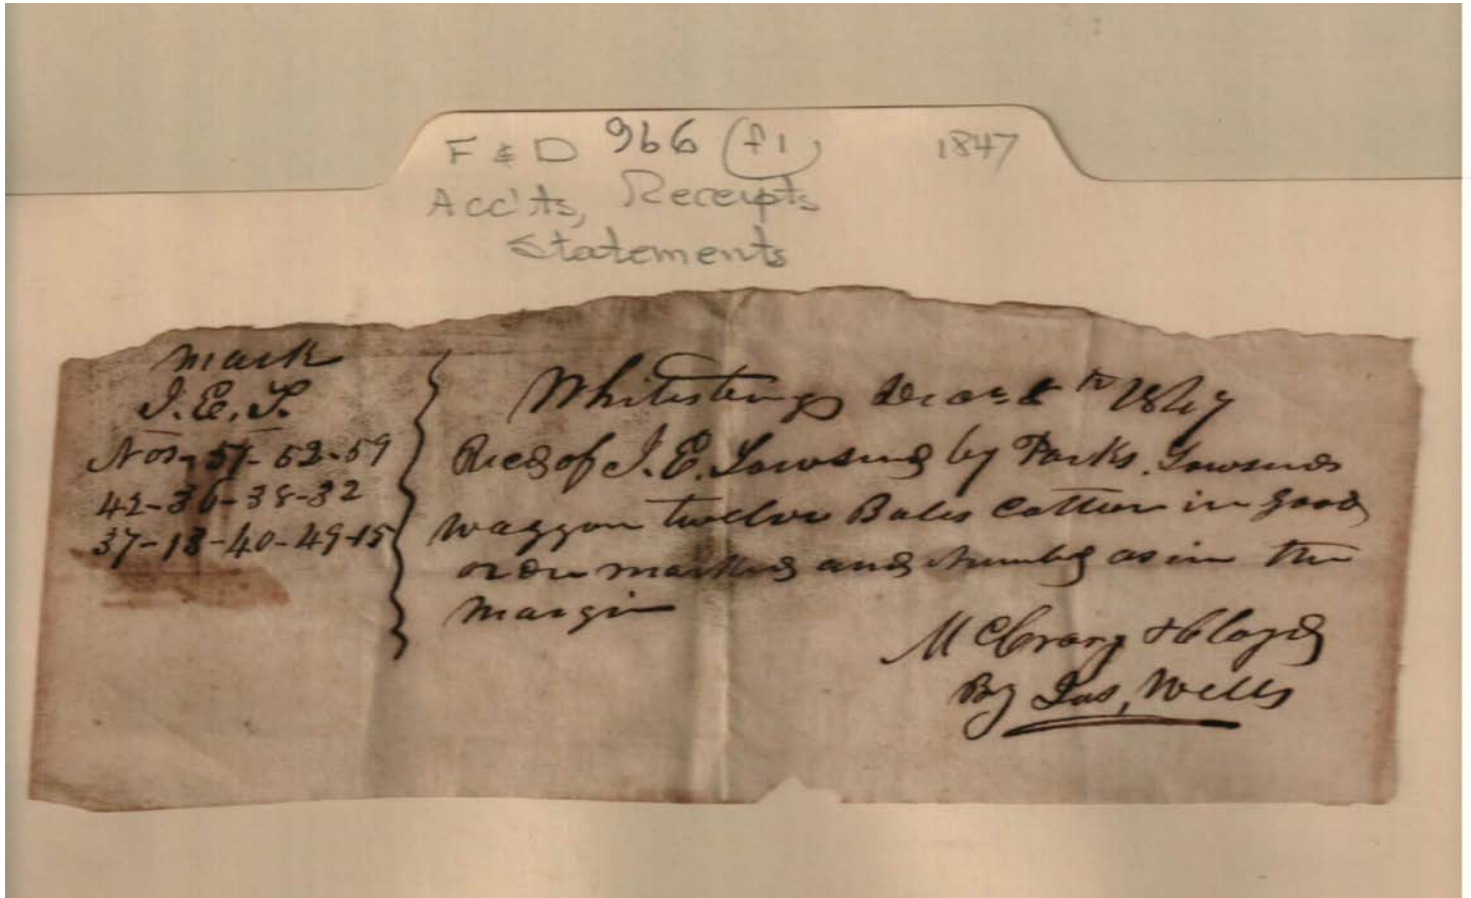 F & D 966 (f1) 1847
Acc'ts, Receipts
Statements
Mark
J. E. T.
Nos - 57 - 52 - 59
42 - 36 - 38 - 32
37 - 18 - 40 - 49 - 15
Whitesburg 1847
Recd of J. E. Townsend by Parks. Townsends
waggon twelve Bales Cotton in good
order marked and numbd as in the
margin
McCrary & Cloyd
By Jas, Wells